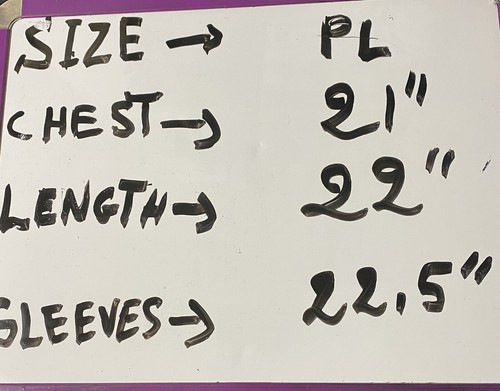 SIZE → PL
CHEST → 21"
LENGTH → 22"
SLEEVES → 22.5"